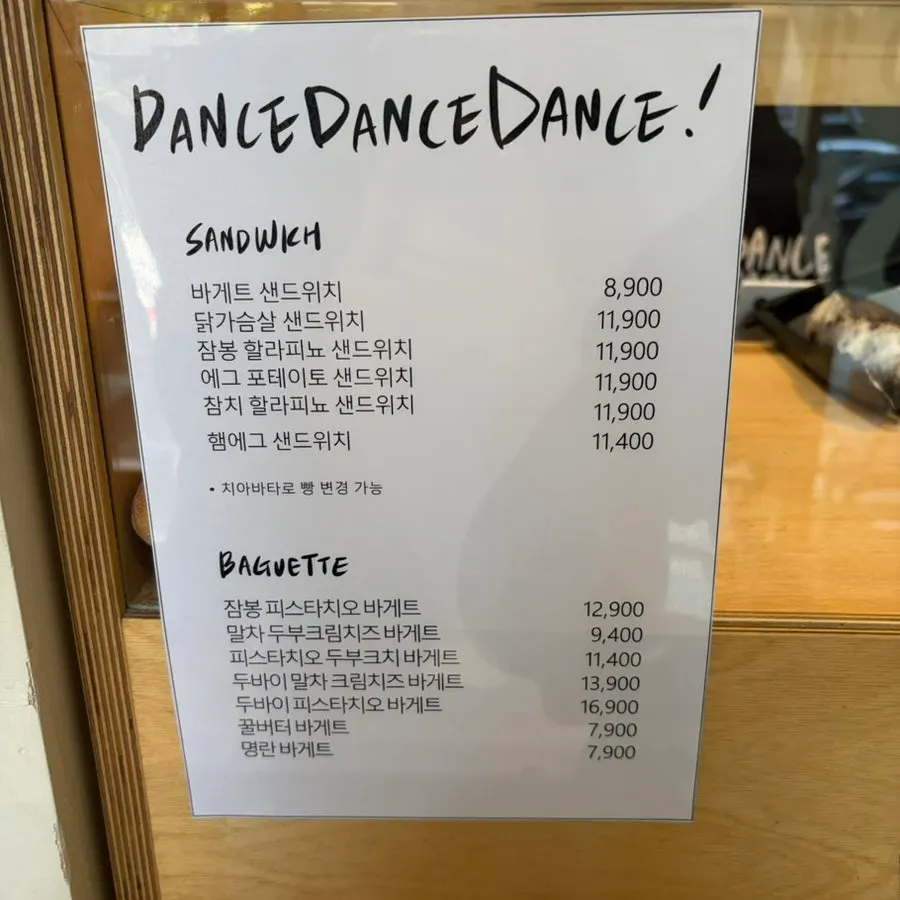 DANCEDANCEDANCE!
SANDWICH
바게트 샌드위치 8,900
닭가슴살 샌드위치 11,900
잠봉 할라피뇨 샌드위치 11,900
에그 포테이토 샌드위치 11,900
참치 할라피뇨 샌드위치 11,900
햄에그 샌드위치 11,400
• 치아바타로 빵 변경 가능
BAGUETTE
잠봉 피스타치오 바게트 12,900
말차 두부크림치즈 바게트 9,400
피스타치오 두부크치 바게트 11,400
두바이 말차 크림치즈 바게트 13,900
두바이 피스타치오 바게트 16,900
꿀버터 바게트 7,900
명란 바게트 7,900
DANCE